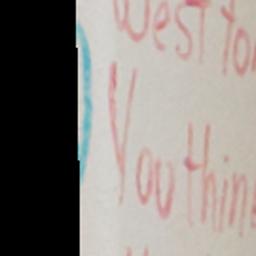 West to
You thin